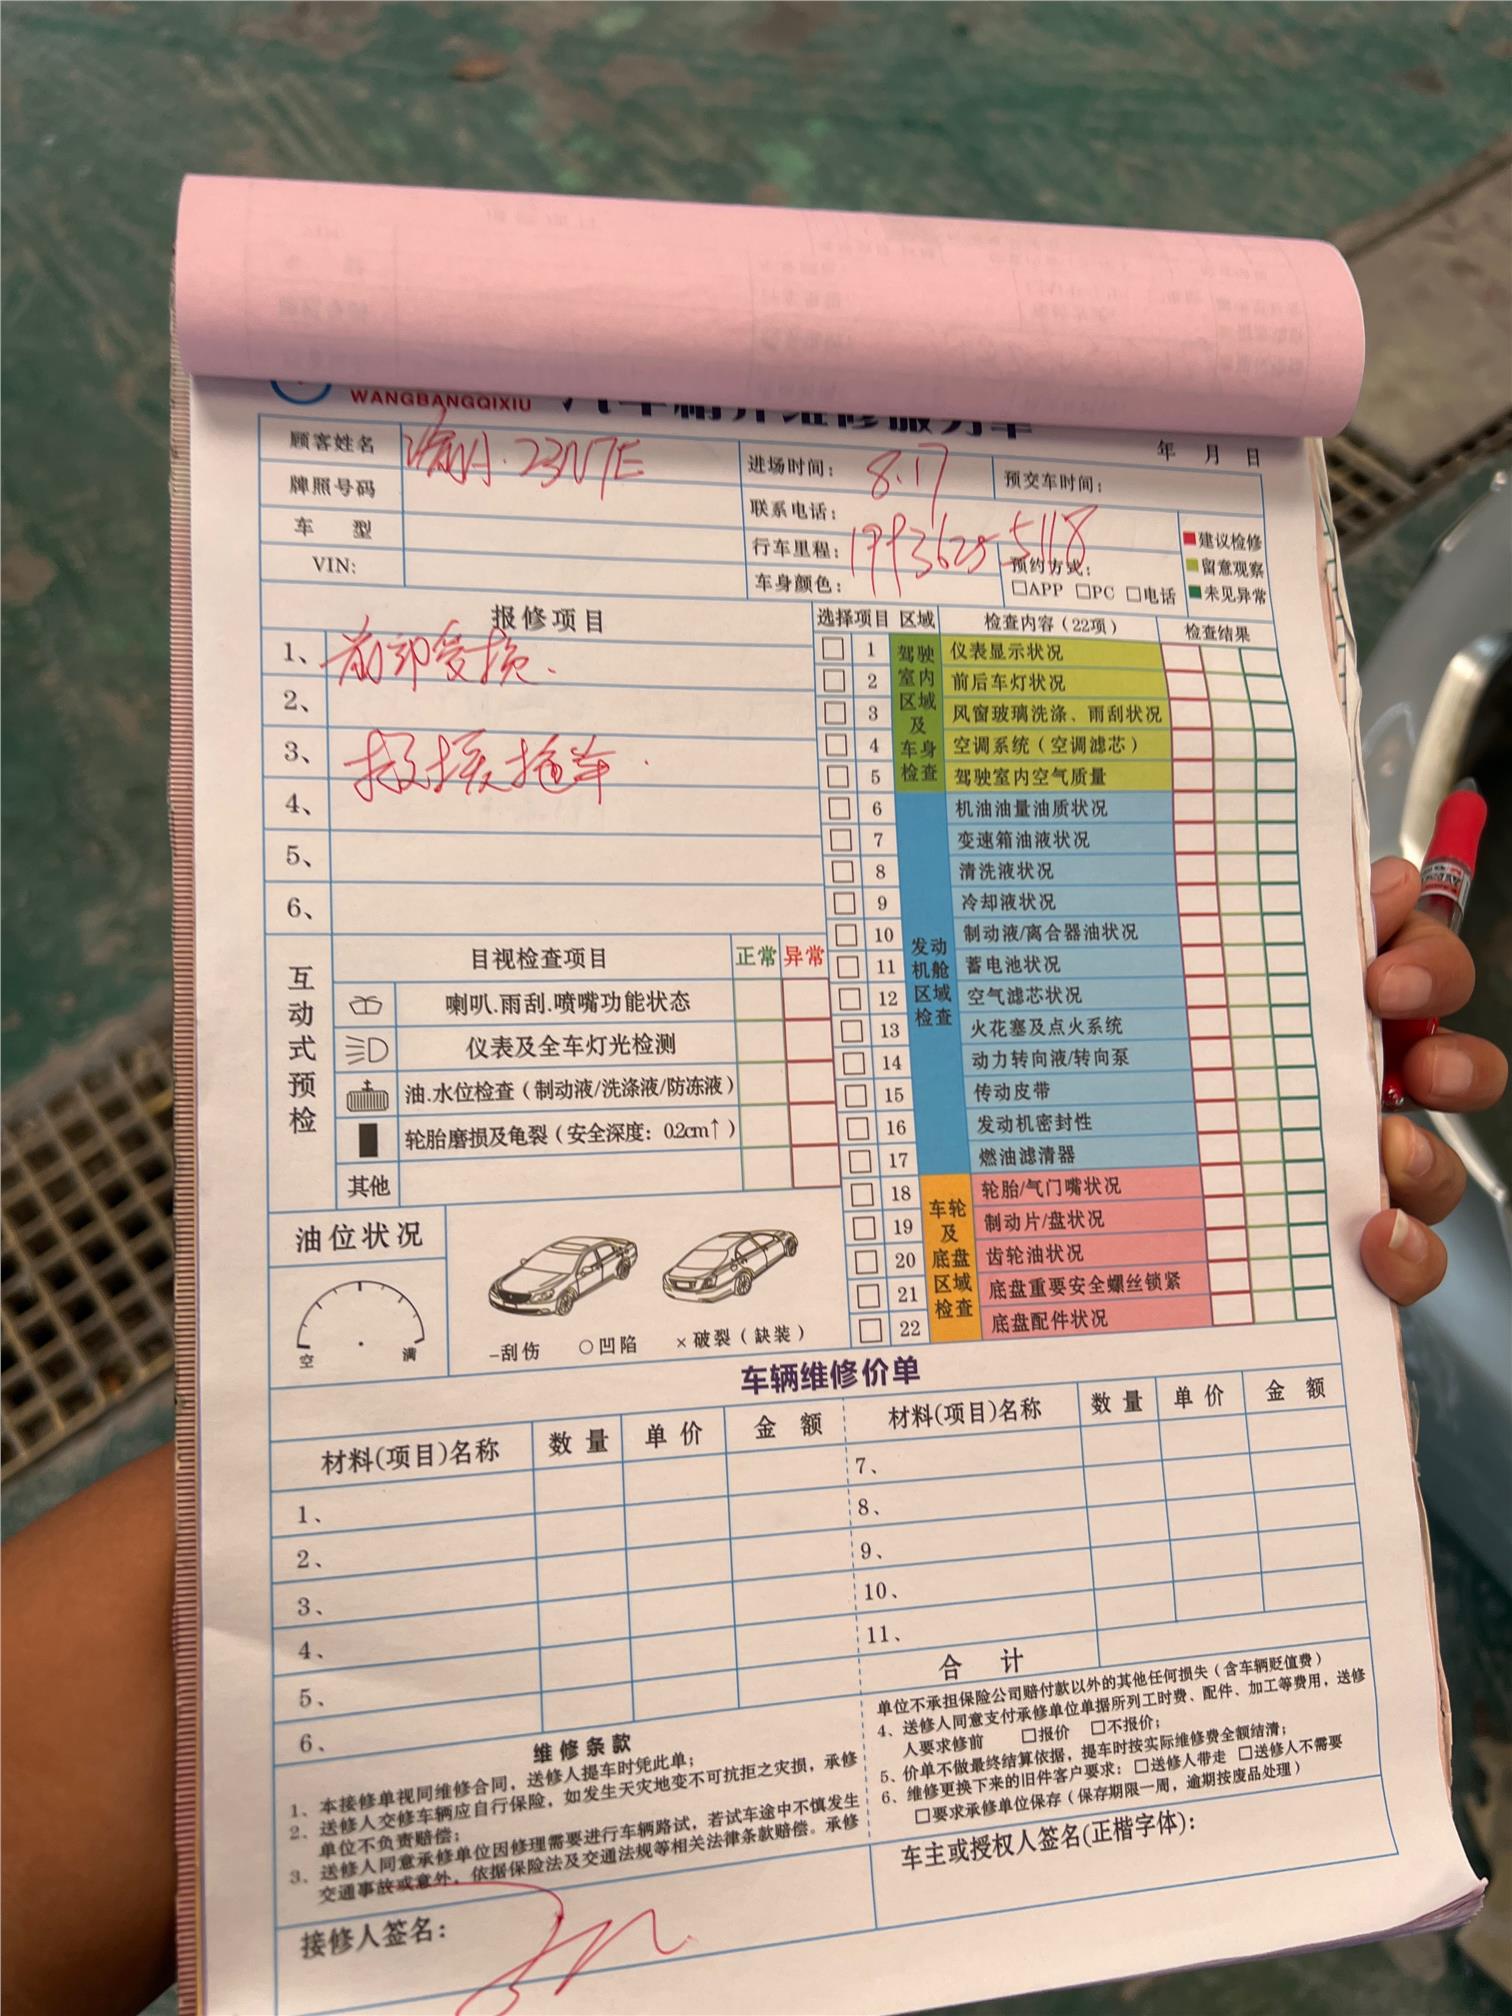 WANGBANGQIXIU
年 月 日
顾客姓名 渝A·23N7E
进场时间: 8.17
预交车时间:
牌照号码
联系电话:
车 型
行车里程: 19936255118
预约方式:
□APP □PC □电话
VIN:
车身颜色:
建议检修
留意观察
未见异常
报修项目
1、前部受损.
2、
3、
4、
5、
6、
选择项目 区域 检查内容（22项） 检查结果
驾驶室内区域及车身检查
1 仪表显示状况
2 前后车灯状况
3 风窗玻璃洗涤、雨刮状况
4 空调系统（空调滤芯）
5 驾驶室内空气质量
发动机舱区域检查
6 机油油量油质状况
7 变速箱油液状况
8 清洗液状况
9 冷却液状况
10 制动液/离合器油状况
11 蓄电池状况
12 空气滤芯状况
13 火花塞及点火系统
14 动力转向液/转向泵
15 传动皮带
16 发动机密封性
17 燃油滤清器
车轮及底盘区域检查
18 轮胎/气门嘴状况
19 制动片/盘状况
20 齿轮油状况
21 底盘重要安全螺丝锁紧
22 底盘配件状况
互动式预检
目视检查项目 正常 异常
喇叭.雨刮.喷嘴功能状态
仪表及全车灯光检测
油.水位检查（制动液/洗涤液/防冻液）
轮胎磨损及龟裂（安全深度：0.2cm↑）
其他
油位状况
空 满
-刮伤 ○凹陷 ×破裂（缺装）
车辆维修价单
材料(项目)名称 数 量 单 价 金 额
材料(项目)名称 数 量 单 价 金 额
1、
2、
3、
4、
5、
6、
7、
8、
9、
10、
11、
合 计
维修条款
1、本接修单视同维修合同，送修人提车时凭此单；
2、送修人交修车辆应自行保险，如发生天灾地变不可抗拒之灾损，承修
单位不负责赔偿；
3、送修人同意承修单位因修理需要进行车辆路试，若试车途中不慎发生
交通事故或意外，依据保险法及交通法规等相关法律条款赔偿。承修
单位不承担保险公司赔付款以外的其他任何损失（含车辆贬值费）
4、送修人同意支付承修单位单据所列工时费、配件、加工等费用，送修
人要求修前 □报价 □不报价；
5、价单不做最终结算依据，提车时按实际维修费全额结清；
6、维修更换下来的旧件客户要求：□送修人带走 □送修人不需要
□要求承修单位保存（保存期限一周，逾期按废品处理）
接修人签名：
车主或授权人签名(正楷字体)：